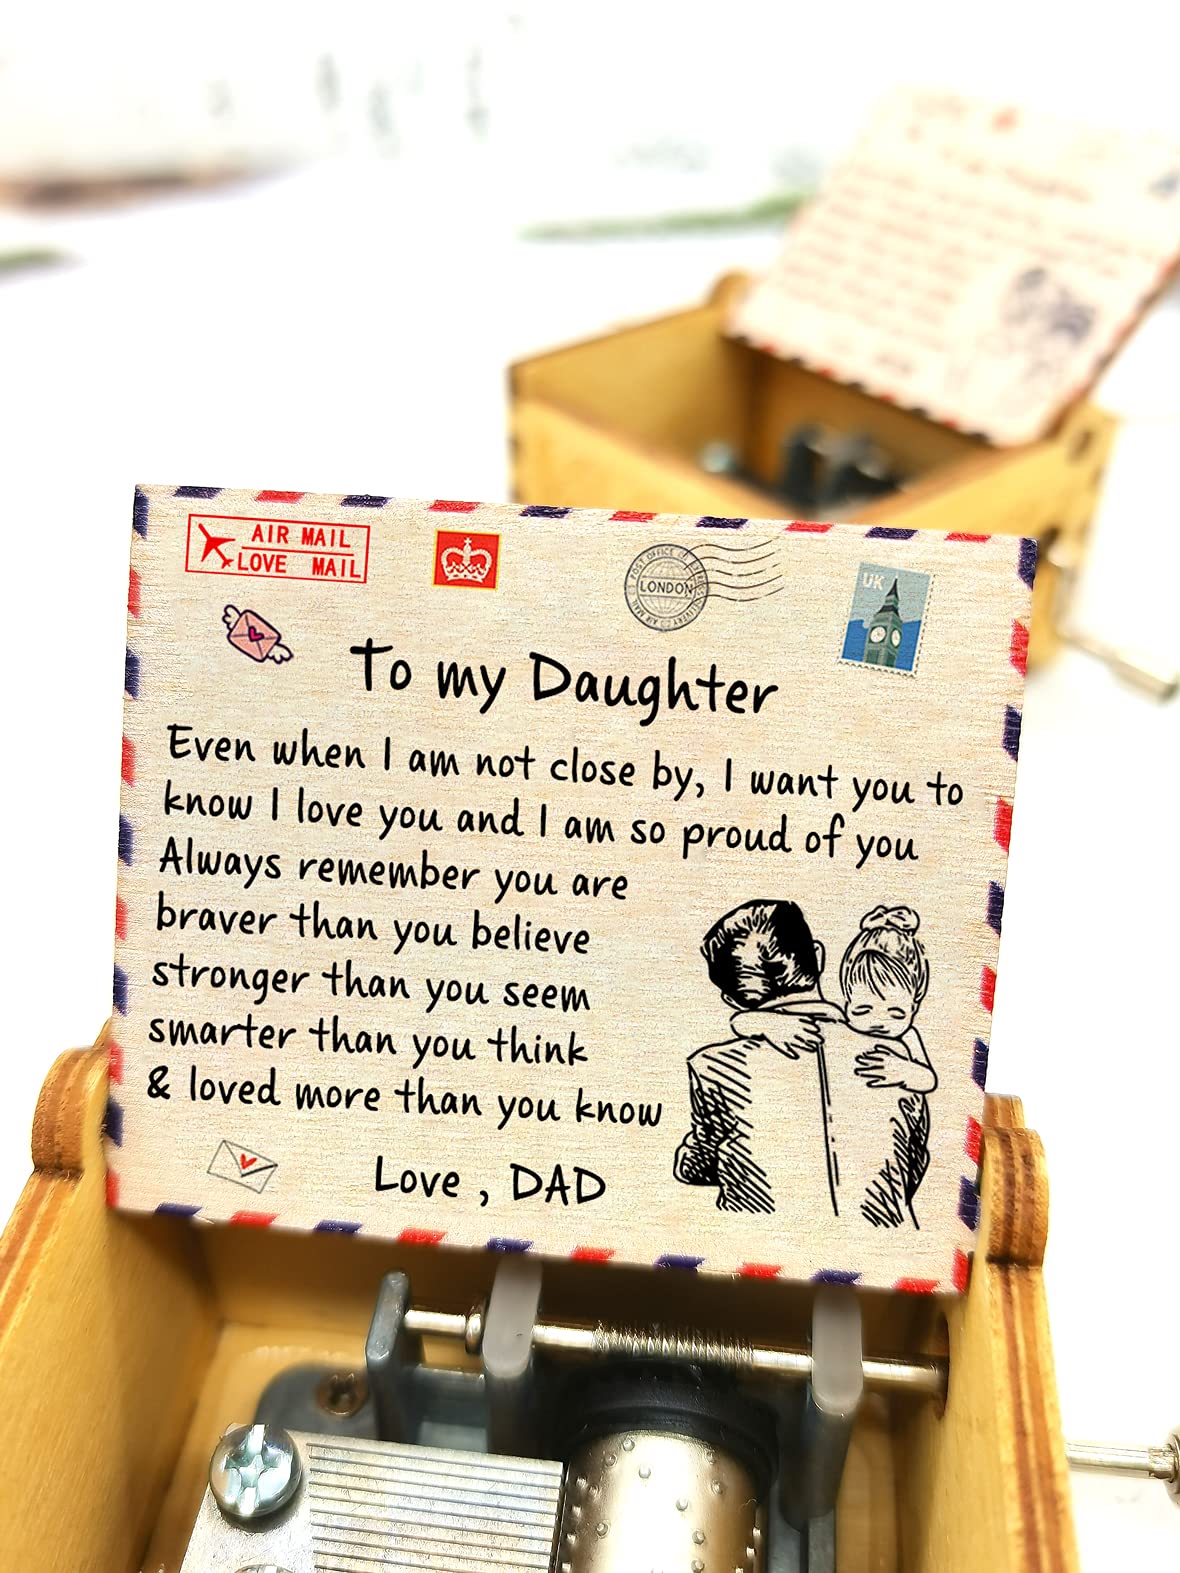 AIR MAIL
LOVE MAIL
LONDON
UK
To my Daughter
Even when I am not close by, I want you to
know I love you and I am so proud of you
Always remember you are
braver than you believe
stronger than you seem
smarter than you think
& loved more than you know
Love , DAD